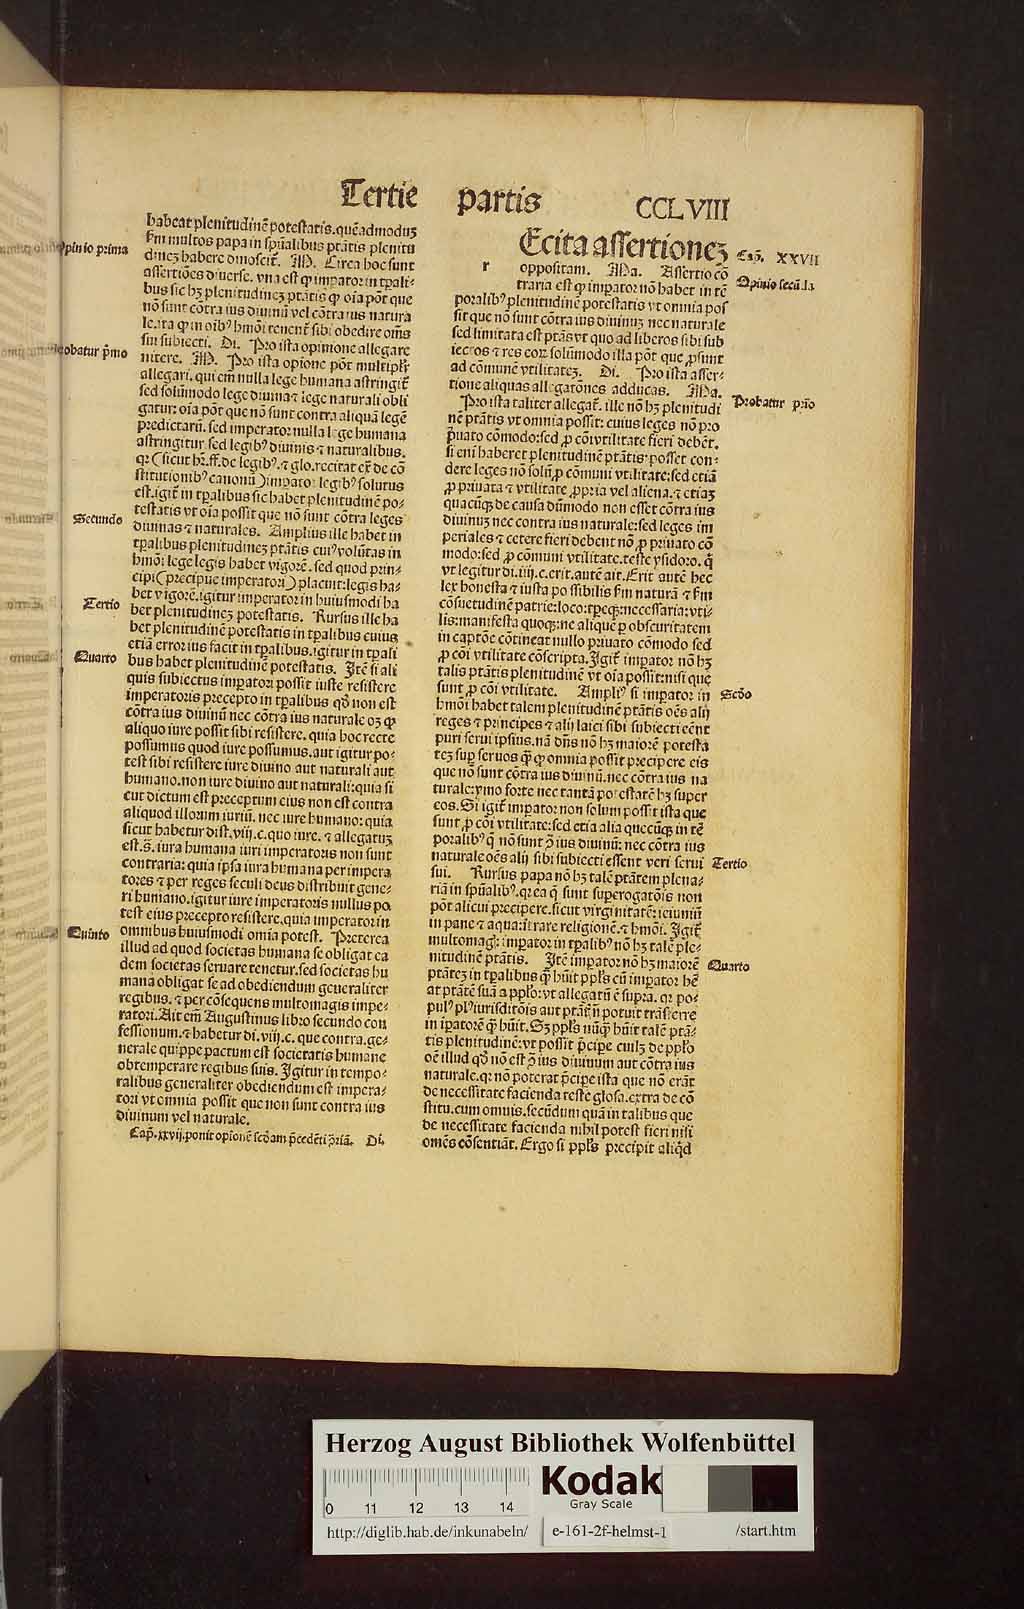 Tertie partis CCLVIII
habeat plenitudinē potestatis. quēadmoduȝ
Opinio prima
fm multos papa in spūalibus ptātis plenitu
dineȝ habere dinoscit̄. M. Circa hoc sunt
assertiōes diuerse. vna est ꝙ impator in tꝑali⸗
bus sic hȝ plenitudineȝ ptātis ꝙ oīa pōt que
nō sunt cōtra ius diuinū vel cōtra ius natura
le. ita ꝙ in oībꝰ hmōi tenent̄ sibi obedire oēs
sui subiecti. Di. Pro ista opinione allegare
Probatur p̄mo
nitere. M. Pro ista opione pōt multiplr̄
allegari. qui em̄ nulla lege humana astringit̄
sed solūmodo lege diuina ⁊ lege naturali obli
gatur: oīa pōt que nō sunt contra aliquā legē
predictarū. sed imperator nulla lege humana
astringitur. sed legibꝰ diuinis ⁊ naturalibus.
qꝛ (sicut hr̄. ff. de legibꝰ. ⁊ glo. recitat ex̄ de cō
stitutionibꝰ canonū) impator legibꝰ solutus
est. igit̄ in tꝑalibus sic habet plenitudinē po⸗
testatis vt oīa possit que nō sunt cōtra leges
Secundo
diuinas ⁊ naturales. Amplius ille habet in
tꝑalibus plenitudineȝ ptātis cuiꝰ volūtas in
hmōi: lege legis habet vigorē. sed quod prin⸗
cipi (precipue imperatori) placuit: legis ha⸗
bet vigorē. igitur imperator in huiusmodi ha
Tertio
bet plenitudineȝ potestatis. Rursus ille ha
bet plenitudinē potestatis in tꝑalibus cuius
etiā error ius facit in tꝑalibus. igitur in tꝑali
Quarto
bus habet plenitudinē potestatis. Itē si ali
quis subiectus impator possit iuste resistere
imperatoris precepto in tꝑalibus qd̄ non est
cōtra ius diuinū nec cōtra ius naturale oȝ ꝙ
aliquo iure possit sibi resistere. quia hoc recte
possumus quod iure possumus. aut igitur po⸗
test sibi resistere iure diuino aut naturali aut
humano. non iure diuino aut naturali: quia si
cut dictum est preceptum eius non est contra
aliquod illorum iuriū. nec iure humano: quia
sicut habetur dist. viij. c. quo iure. ⁊ allegatuȝ
est. s̄. iura humana iuri imperatoris non sunt
contraria: quia ipsa iura humana per impera
tores ⁊ per reges seculi deus distribuit gene⸗
ri humano. igitur iure imperatoris nullus po
test eius precepto resistere. quia imperator in
Quinto
omnibus huiusmodi omīa potest. Preterea
illud ad quod societas humana se obligat ea
dem societas seruare tenetur. sed societas hu
mana obligat se ad obediendum generaliter
regibus. ⁊ per cōsequens multomagis impe⸗
ratori. Ait em̄ Augustinus libro secundo con
fessionum. ⁊ habetur di. viij. c. que contra. ge⸗
nerale quippe pactum est societatis humane
obtemperare regibus suis. Igitur in tempo⸗
ralibus generaliter obediendum est impera⸗
tori vt omnia possit que non sunt contra ius
diuinum vel naturale.
Cap. xxvij. ponit opionē scd̄am p̄cedēti ꝯtrariā. Di.
Ecita assertioneȝ
Cap. XXVII
r
oppositam. Ma. Assertio cō
Opinio secūda
traria est ꝙ impator nō habet in tē
poralibꝰ plenitudinē potestatis vt omnia pos
sit que nō sunt cōtra ius diuinuȝ nec naturale
sed limitata est ptās vt quo ad liberos sibi sub
iectos ⁊ res eoꝝ solūmodo illa pōt que ꝓsunt
ad cōmunē vtilitateȝ. Di. Pro ista asser⸗
tione aliquas allegatōnes adducas. Ma.
Probatur prīo
Pro ista taliter allegat̄. ille nō hȝ plenitudi
nē ptātis vt omnia possit: cuius leges nō pro
pͥuato cōmodo: sed ꝓ cōi vtilitate fieri debēt.
si eni haberet plenitudinē ptātis: posset con⸗
dere leges nō solū ꝓ comuni vtilitate: sed etiā
ꝓ pͥuata ⁊ vtilitate ꝓpria vel aliena. ⁊ etiaȝ
quacūqȝ de causa dūmodo non esset cōtra ius
diuinuȝ nec contra ius naturale: sed leges im
periales ⁊ cetere fieri debent nō ꝓ priuato cō
modo: sed ꝓ cōmuni vtilitate. teste ysidoro. qͥ
vt legitur di. iiij. c. erit. autē ait. Erit autē hec
lex honesta ⁊ iusta possibilis fm naturā ⁊ fm
cōsuetudinē patrie: loco: tꝑeqȝ: necessaria: vti⸗
lis: manifesta quoqȝ: ne aliqͥd ꝑ obscuritatem
in captōe cōtineat nullo priuato cōmodo sed
ꝓ cōi vtilitate cōscripta. Igit̄ impator nō hȝ
talis ptātis plenitudinē vt oīa possit: nisi que
sunt ꝓ cōi vtilitate. Ampliꝰ si impator in
Scd̄o
hmōi habet talem plenitudinē ptātis oēs alij
reges ⁊ principes ⁊ alij laici sibi subiecti eēnt
puri serui ipsius. nā dn̄s nō hȝ maiorē potesta
teȝ suꝑ seruos qͣꝫ ꝙ omnia possit precipere eis
que nō sunt cōtra ius diuinū. nec cōtra ius na
turale: ymo forte nec tantā potestatē hȝ super
eos. Si igit̄ impator non solum possit ista que
sunt ꝓ cōi vtilitate: sed etiā alia quecūqȝ in tē
poralibꝰ q̄ nō sunt ꝯtra ius diuinū: nec cōtra ius
naturale oēs alij sibi subiecti essent veri serui
Tertio
sui. Rursus papa nō hȝ talē ptātem plena⸗
riā in spūalibꝰ. qꝛ ea q̄ sunt superogatōis non
pōt alicui precipere. sicut virginitatē: ieiuniū
in pane ⁊ aqua: ītrare religionē. ⁊ hmōi. Igit̄
multomagꝭ impator in tꝑalibꝰ nō hȝ talē ple⸗
nitudinē ptātis. Itē impator nō hȝ maiorē
Quarto
ptāteȝ in tꝑalibus qͣꝫ hūit ppl̄s cū impator hē
at ptātē suā a ppl̄o: vt allegatū ē supra. qꝛ po⸗
pulꝰ plꝰ iurisditōis aut ptātꝭ nō potuit trāsferre
in īpatorē qͣꝫ hūit. Sȝ ppl̄s nūqͣꝫ hūit talē ptā⸗
tis plenitudinē: vt possit p̄cipe cuilȝ de ppl̄o
oē illud qd̄ nō est ꝯtra ius diuinum aut cōtra ius
naturale. qꝛ nō poterat p̄cipe ista que nō erāt
de necessitate facienda teste glosa. extra de cō
stitu. cum omnis. secūdum quā in talibus que
de necessitate facienda nihil potest fieri nisi
omēs cōsentiāt. Ergo si ppl̄s precipit aliqͥd
Herzog August Bibliothek Wolfenbüttel
Kodak
Gray Scale
0 11 12 13 14
http://diglib.hab.de/inkunabeln/ e-161-2f-helmst-1 /start.htm